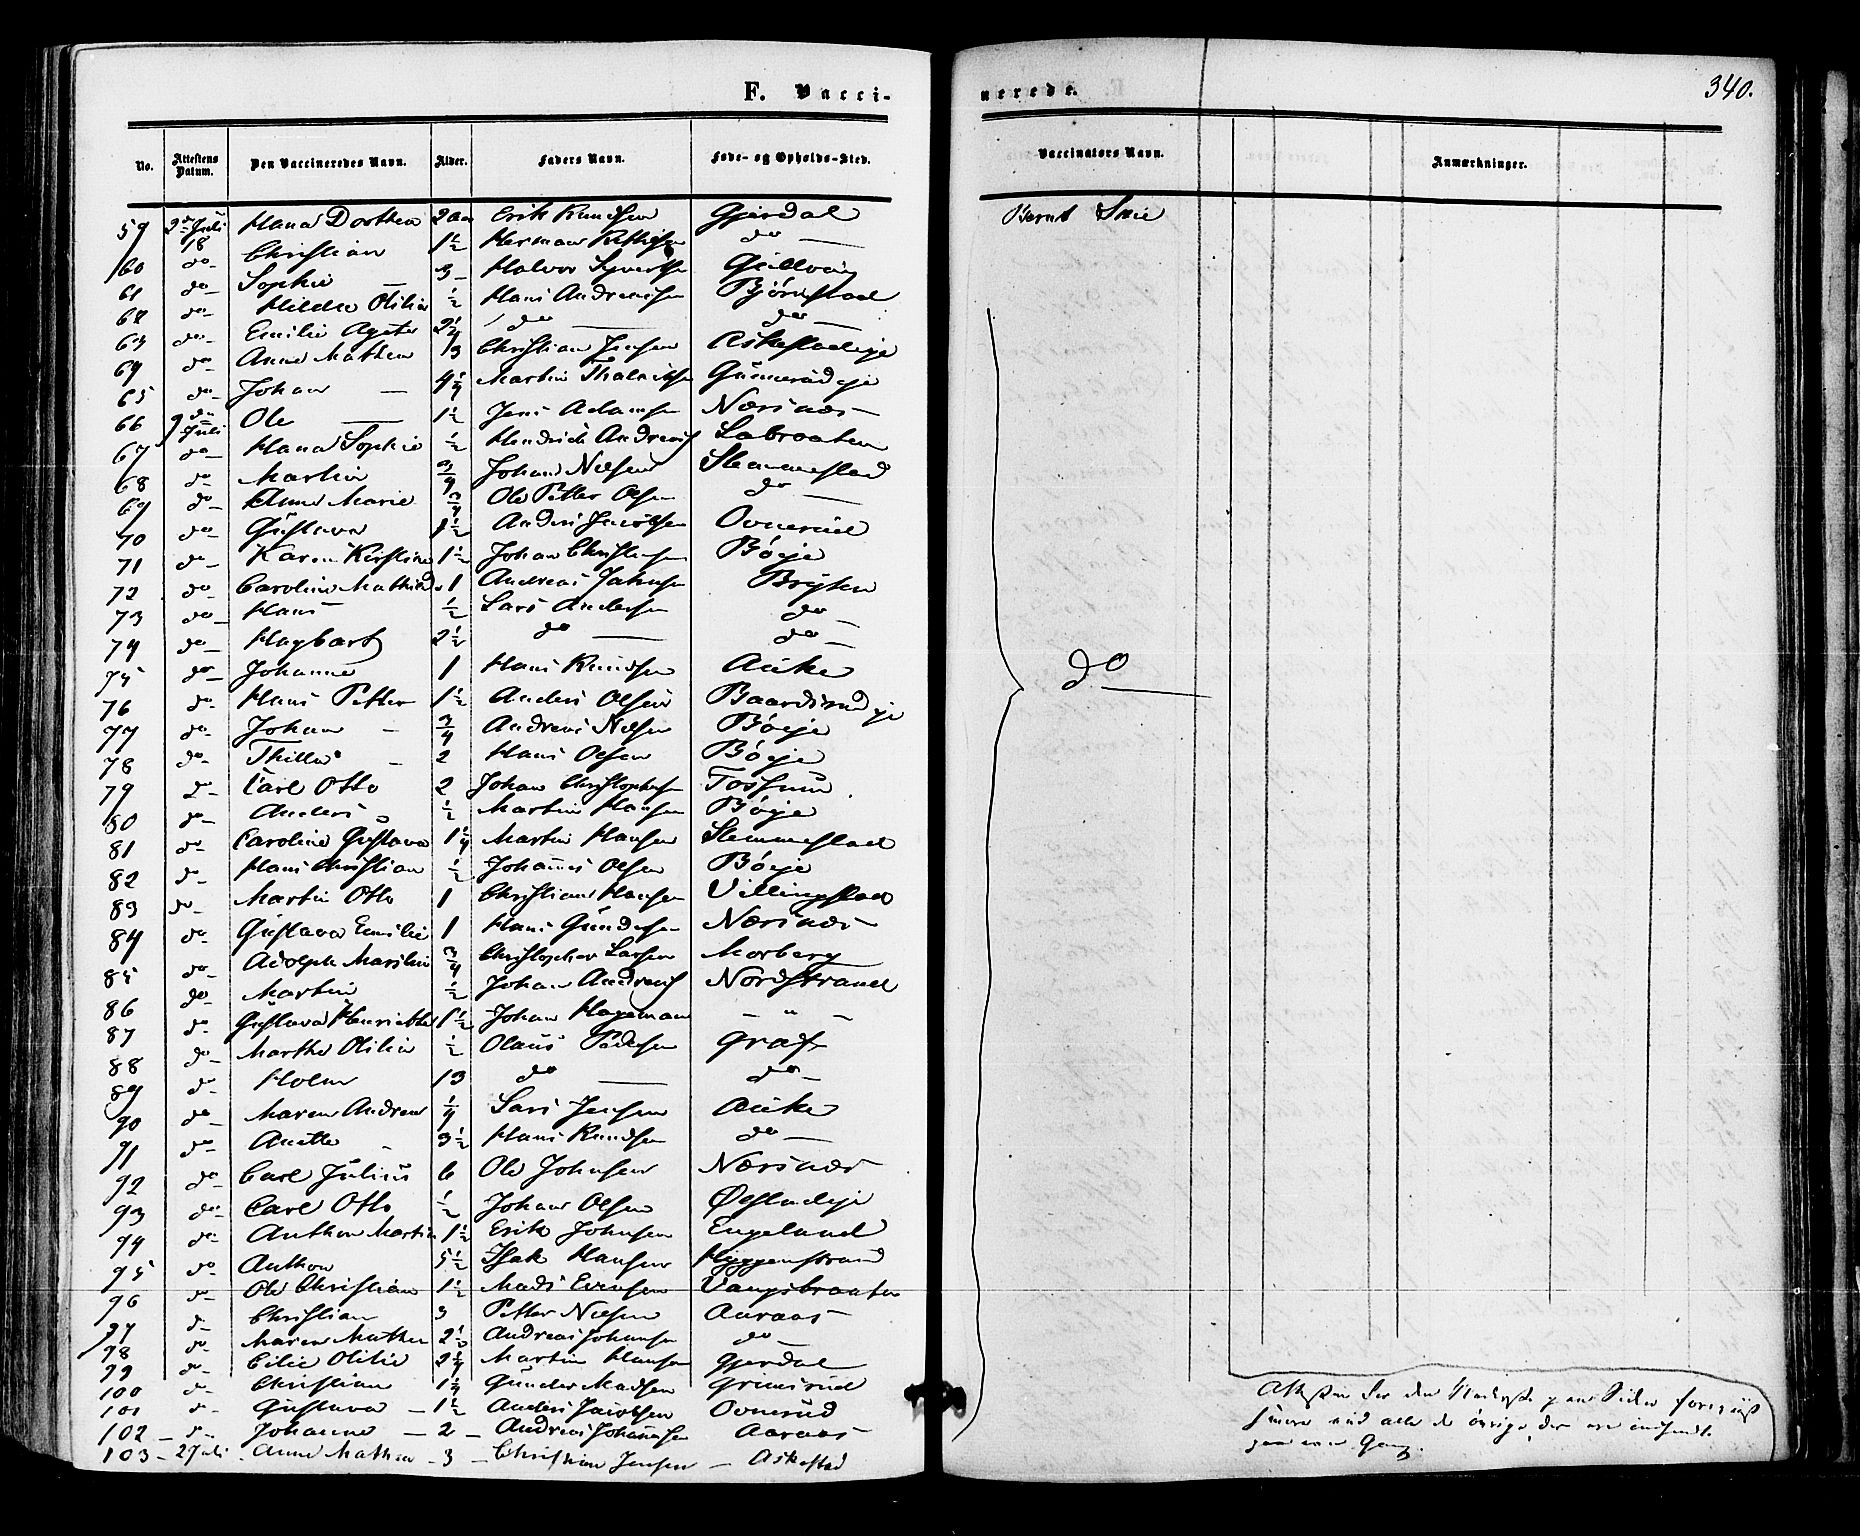 F. Vacci-
nerede.
340.
No. Attestens Datum. Den Vaccineredes Navn. Alder. Faders Navn. Føde- og Opholds-Sted. Vaccinators Navn. Anmærkninger.
59 2den Juli 18 Hana Dorthea 2 aar Erik Knudsen Gjerdal Bernt
60 do Christian 1½ Herman do
61 do Sophie 3 Halvor Syvertsen
62 do Hilda Otilia ½ Hans Andreassen Bjørnstad
63 do Emilie Agate 2¼ do do
64 do Anne Mathea 3 Christian Jensen Askestadeje
65 do Johan 4¼ Martin Gunnerudeje
66 9de Juli Ole 1½ Jens Adamsen Næsnæs
67 do Hana Sophie ½ Hendrik Andreas Labraaten
68 do Martin ¾ Johan Nilsen Slemmestad
69 do Anne Marie ¾ Ole Petter Olsen do
70 do Gustava 1½ Anders Jacobsen Ovnerud
71 do Karen Kirstine 1½ Johan Christensen Böeje
72 do Caroline Mathilde 1 Andreas Johnsen Bryhn
73 do Hans ½ Lars Andersen do
74 do Hagbart 2½ do do
75 do Johanne 1 Hans Knudsen Auke
76 do Hans Petter 1½ Anders Olsen Baardsrudeje
77 do Johan ¾ Andreas Nilsen Böeje
78 do Thilla 2 Hans Olsen Böeje
79 do Carl Otto 2 Johan Christophersen Tossum
80 do Anders ½ Martin Hansen Böeje
81 do Caroline Gustava 1¼ Martin Hansen Slemmestad
82 do Hans Christian ½ Johannes Olsen Böeje
83 do Martin Otto 1 Christian Hansen Villingstad
84 do Gustava Emilie 1 Hans Gundersen Næsnæs
85 do Adolph Martin ¾ Christopher Larsen Morberg
86 do Martin ½ Johan Andreas Nordstrand
87 do Gustava Henriette 1½ Johan Hageman - " -
88 do Marthe Otilia ½ Olaus Pedersen Graf
89 do Holm 13 do do
90 do Maren Andrea ¼ Lars Jensen Auke
91 do Anette 3½ Hans Knudsen do
92 do Carl Julius 6 Ole Johnsen Næsnæs
93 do Carl Otto ½ Johan Olsen Ølstadeje
94 do Anthon Martin 1½ Erik Johnsen Engelund
95 do Anthon 5½ Isak Hansen Hyggenstrand
96 do Ole Christian 1½ Mads Evensen Vangsbraaten
97 do Christian 3 Petter Nilsen Aaraas
98 do Maren Mathea 2½ Andreas Johansen do
99 do Cilie Otilie 2¼ Martin Hansen Gjerdal
100 do Christian 1¼ Gunder Madsen Grimsrud
101 do Gustava 1½ Anders Jacobsen Ovnerud
102 do Johanne 2 Andreas Johansen Aaraas
103 2 Juli Anne Mathea 3 Christian Jensen Askestad
do